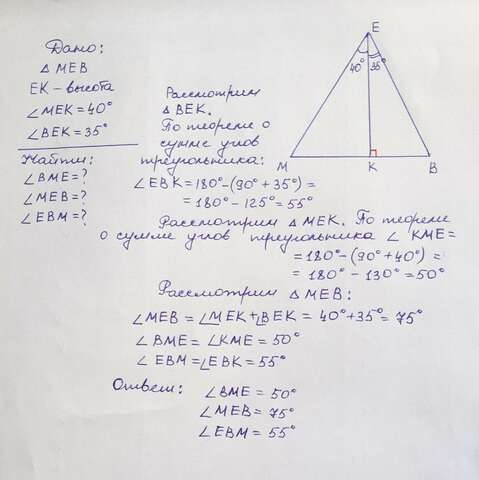 Дано:
△ MEB
EK - высота
∠ MEK = 40°
∠ BEK = 35°
Найти:
∠ BME = ?
∠ MEB = ?
∠ EBM = ?
E
40° 35°
M K B
Рассмотрим
△ BEK.
По теореме о
сумме углов
треугольника:
∠ EBK = 180° - (90° + 35°) =
= 180° - 125° = 55°
Рассмотрим △ MEK. По теореме
о сумме углов треугольника ∠ KME =
= 180° - (90° + 40°) =
= 180° - 130° = 50°
Рассмотрим △ MEB:
∠ MEB = ∠ MEK + ∠ BEK = 40° + 35° = 75°
∠ BME = ∠ KME = 50°
∠ EBM = ∠ EBK = 55°
Ответ: ∠ BME = 50°
∠ MEB = 75°
∠ EBM = 55°